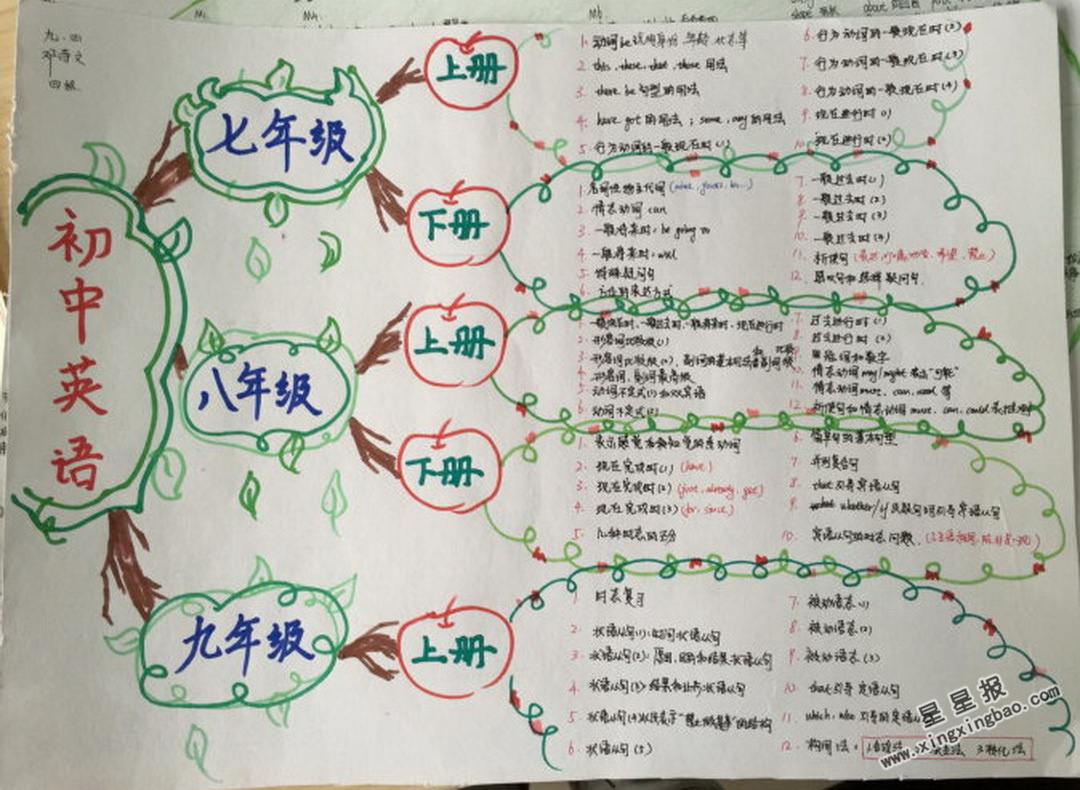 九.四
邓奇文
初中英语
七年级
上册
1. 动词be说明身份 年龄 状态等
2 this, these, that, those 用法
3. there be 句型的用法
4. have got 的用法；some, any的用法
5. 行为动词的一般现在时(1)
6. 行为动词的一般现在时(2)
7. 行为动词的一般现在时(3)
8. 行为动词的一般现在时(4)
9. 现在进行时(1)
10. 现在进行时(2)
下册
1. 名词性物主代词
2. 情态动词 can
3. 一般将来时: be going to
4. 一般将来时: will
5. 特殊疑问句
6. 方位的表达方式
7. 一般过去时(1)
8 一般过去时(2)
9 一般过去时(3)
10. 一般过去时(4)
11. 祈使句
12. 感叹句和选择疑问句
八年级
上册
1 一般现在时、一般过去时、一般将来时、现在进行时
2 形容词比较级(1)
3 形容词比较级(2)
4 形容词、副词最高级
5 动词不定式(1)和双宾语
6. 动词不定式(2)
7. 过去进行时(1)
8 过去进行时(2)
9 冠词和数字
10. 情态动词 may/might 表达"可能"
11. 情态动词 must, can, need 等
12. 祈使句和情态动词 must, can, could
下册
1. 表示感觉和知觉的系动词
2. 现在完成时(1) (have)
3. 现在完成时(2) (just, already, yet)
4. 现在完成时(3) (for, since)
5. 几种时态的区分
6. 简单句的基本句型
7. 并列复合句
8. that 引导宾语从句
9 whether/if 及疑问词引导宾语从句
10. 宾语从句的时态问题
九年级
上册
1 时态复习
2 状语从句(1): 时间状语从句
3. 状语从句(2): 原因、目的和结果状语从句
4 状语从句(3)
5. 状语从句(4)
6 状语从句(5)
7. 被动语态(1)
8. 被动语态(2)
9. 被动语态(3)
10. that 引导定语从句
11. which, who 引导的定语从句
12. 构词法: 1合成法 3.转化法
星星报
www.xingxingbao.com